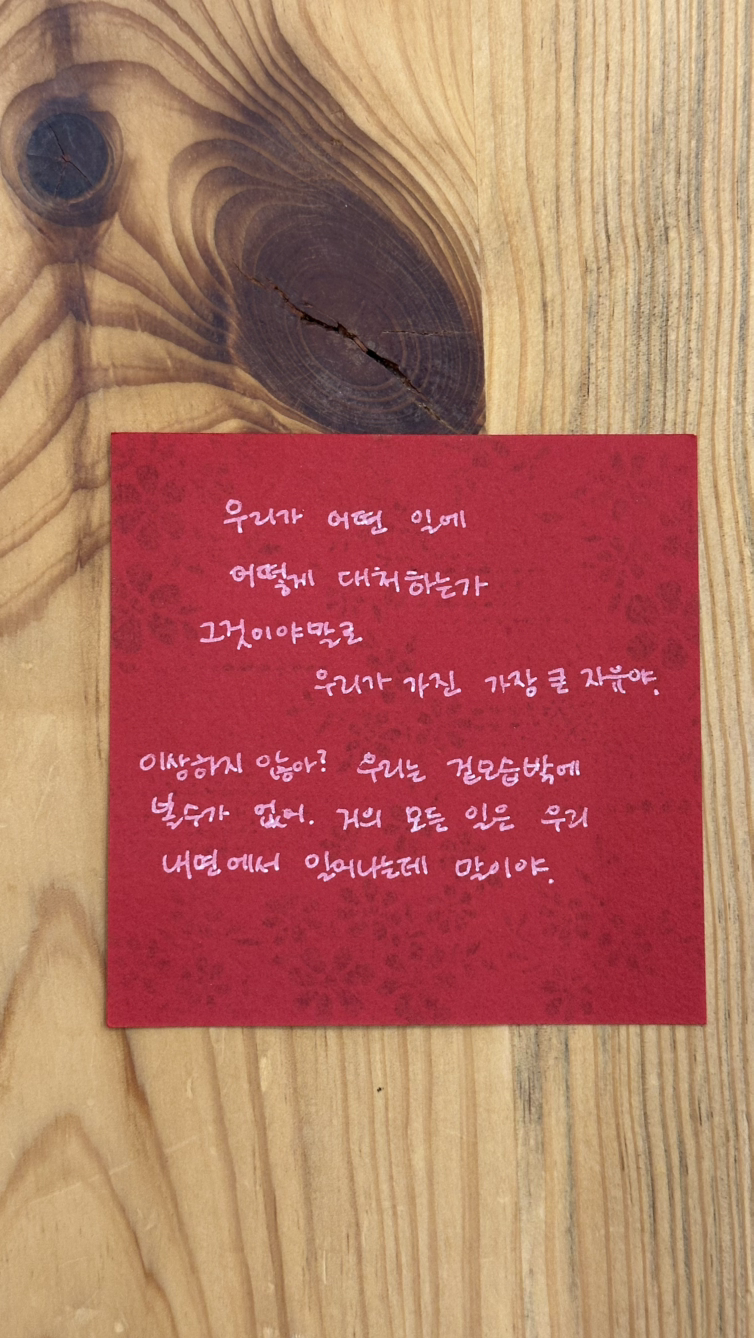 우리가 어떤 일에
어떻게 대처하는가
그것이야말로
우리가 가진 가장 큰 자유야.
이상하지 않아? 우리는 겉모습밖에
볼수가 없어. 거의 모든 일은 우리
내면에서 일어나는데 말이야.